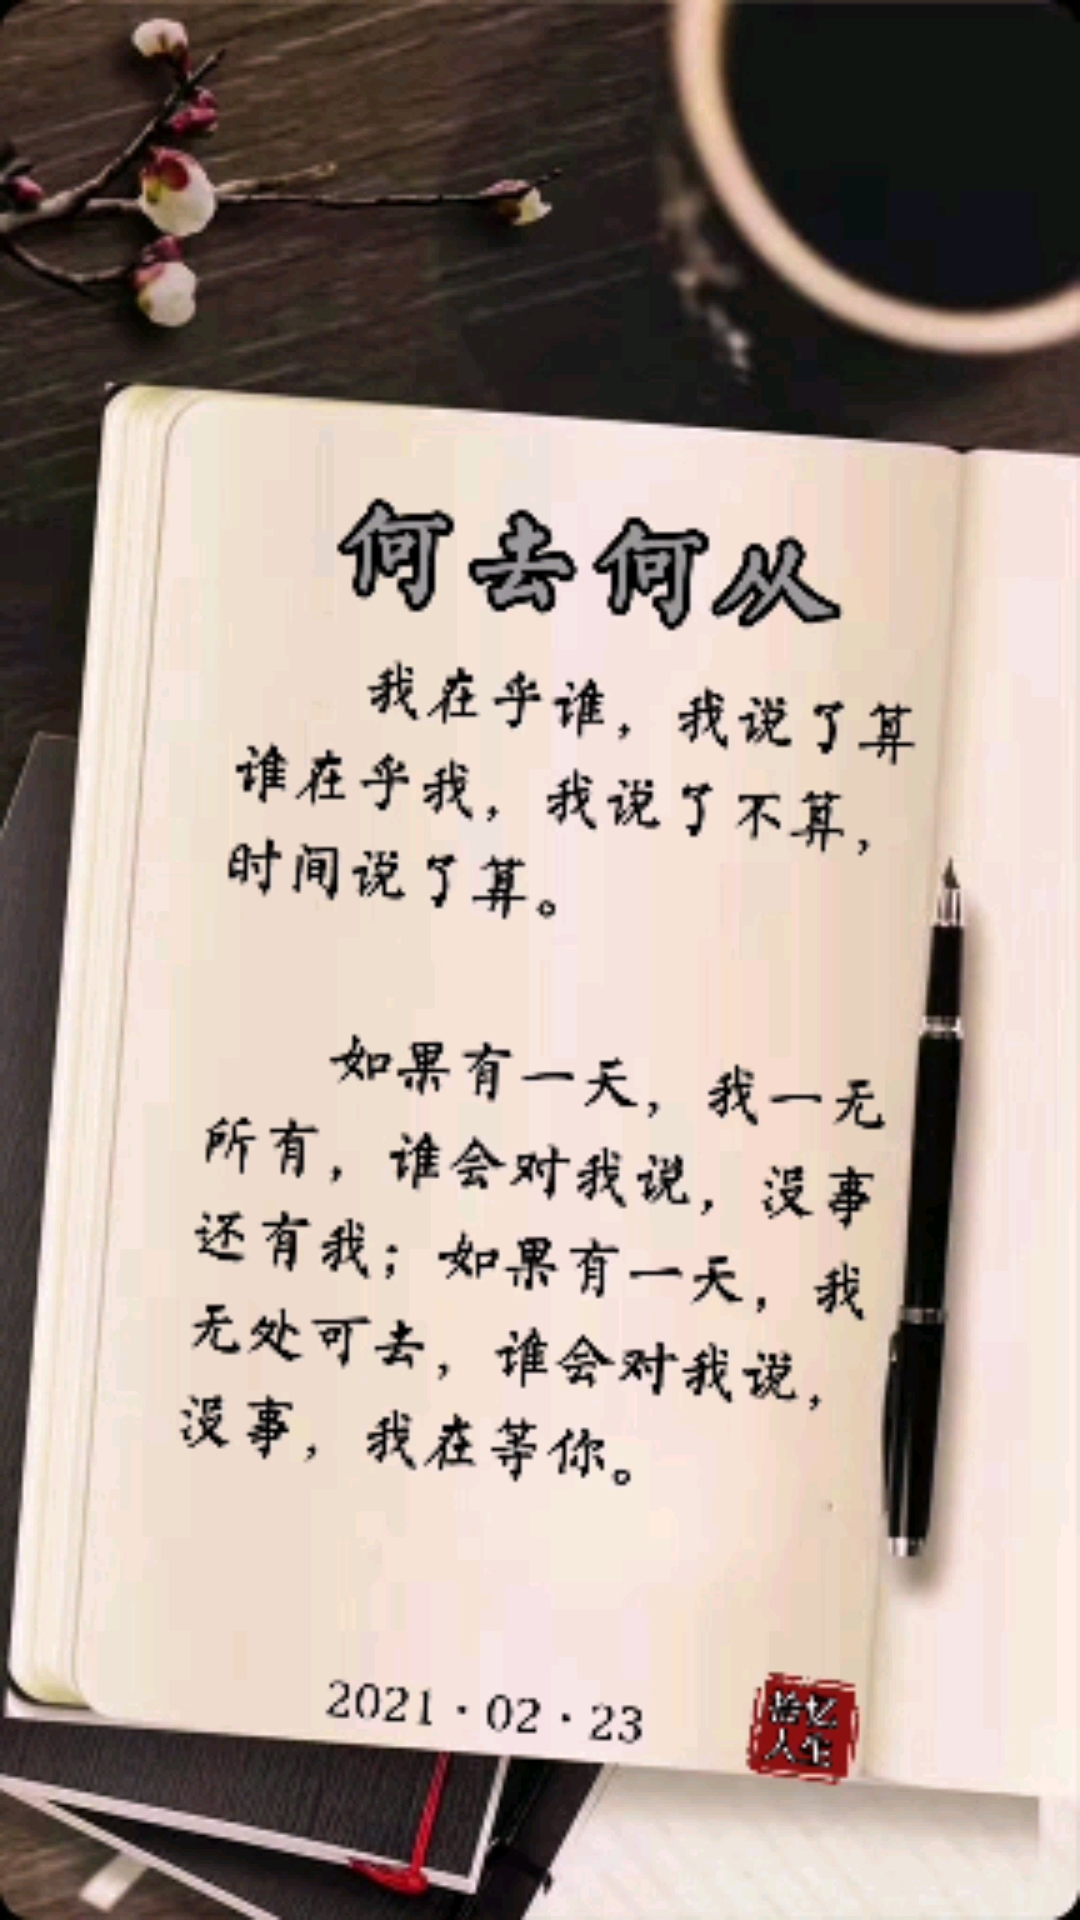 何去何从
我在乎谁，我说了算
谁在乎我，我说了不算，
时间说了算。
如果有一天，我一无
所有，谁会对我说，没事
还有我；如果有一天，我
无处可去，谁会对我说，
没事，我在等你。
2021·02·23
拾忆
人生